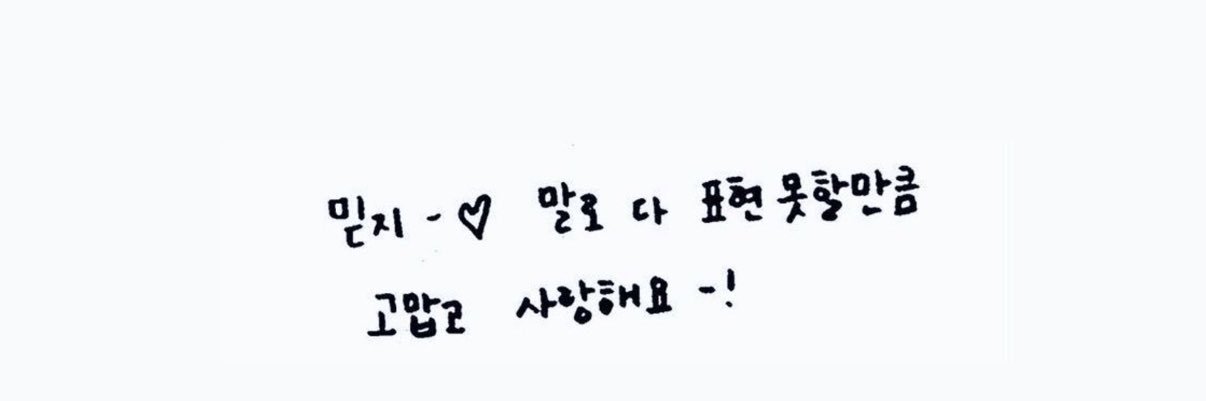 믿지-♡ 말로 다 표현 못할만큼
고맙고 사랑해요-!